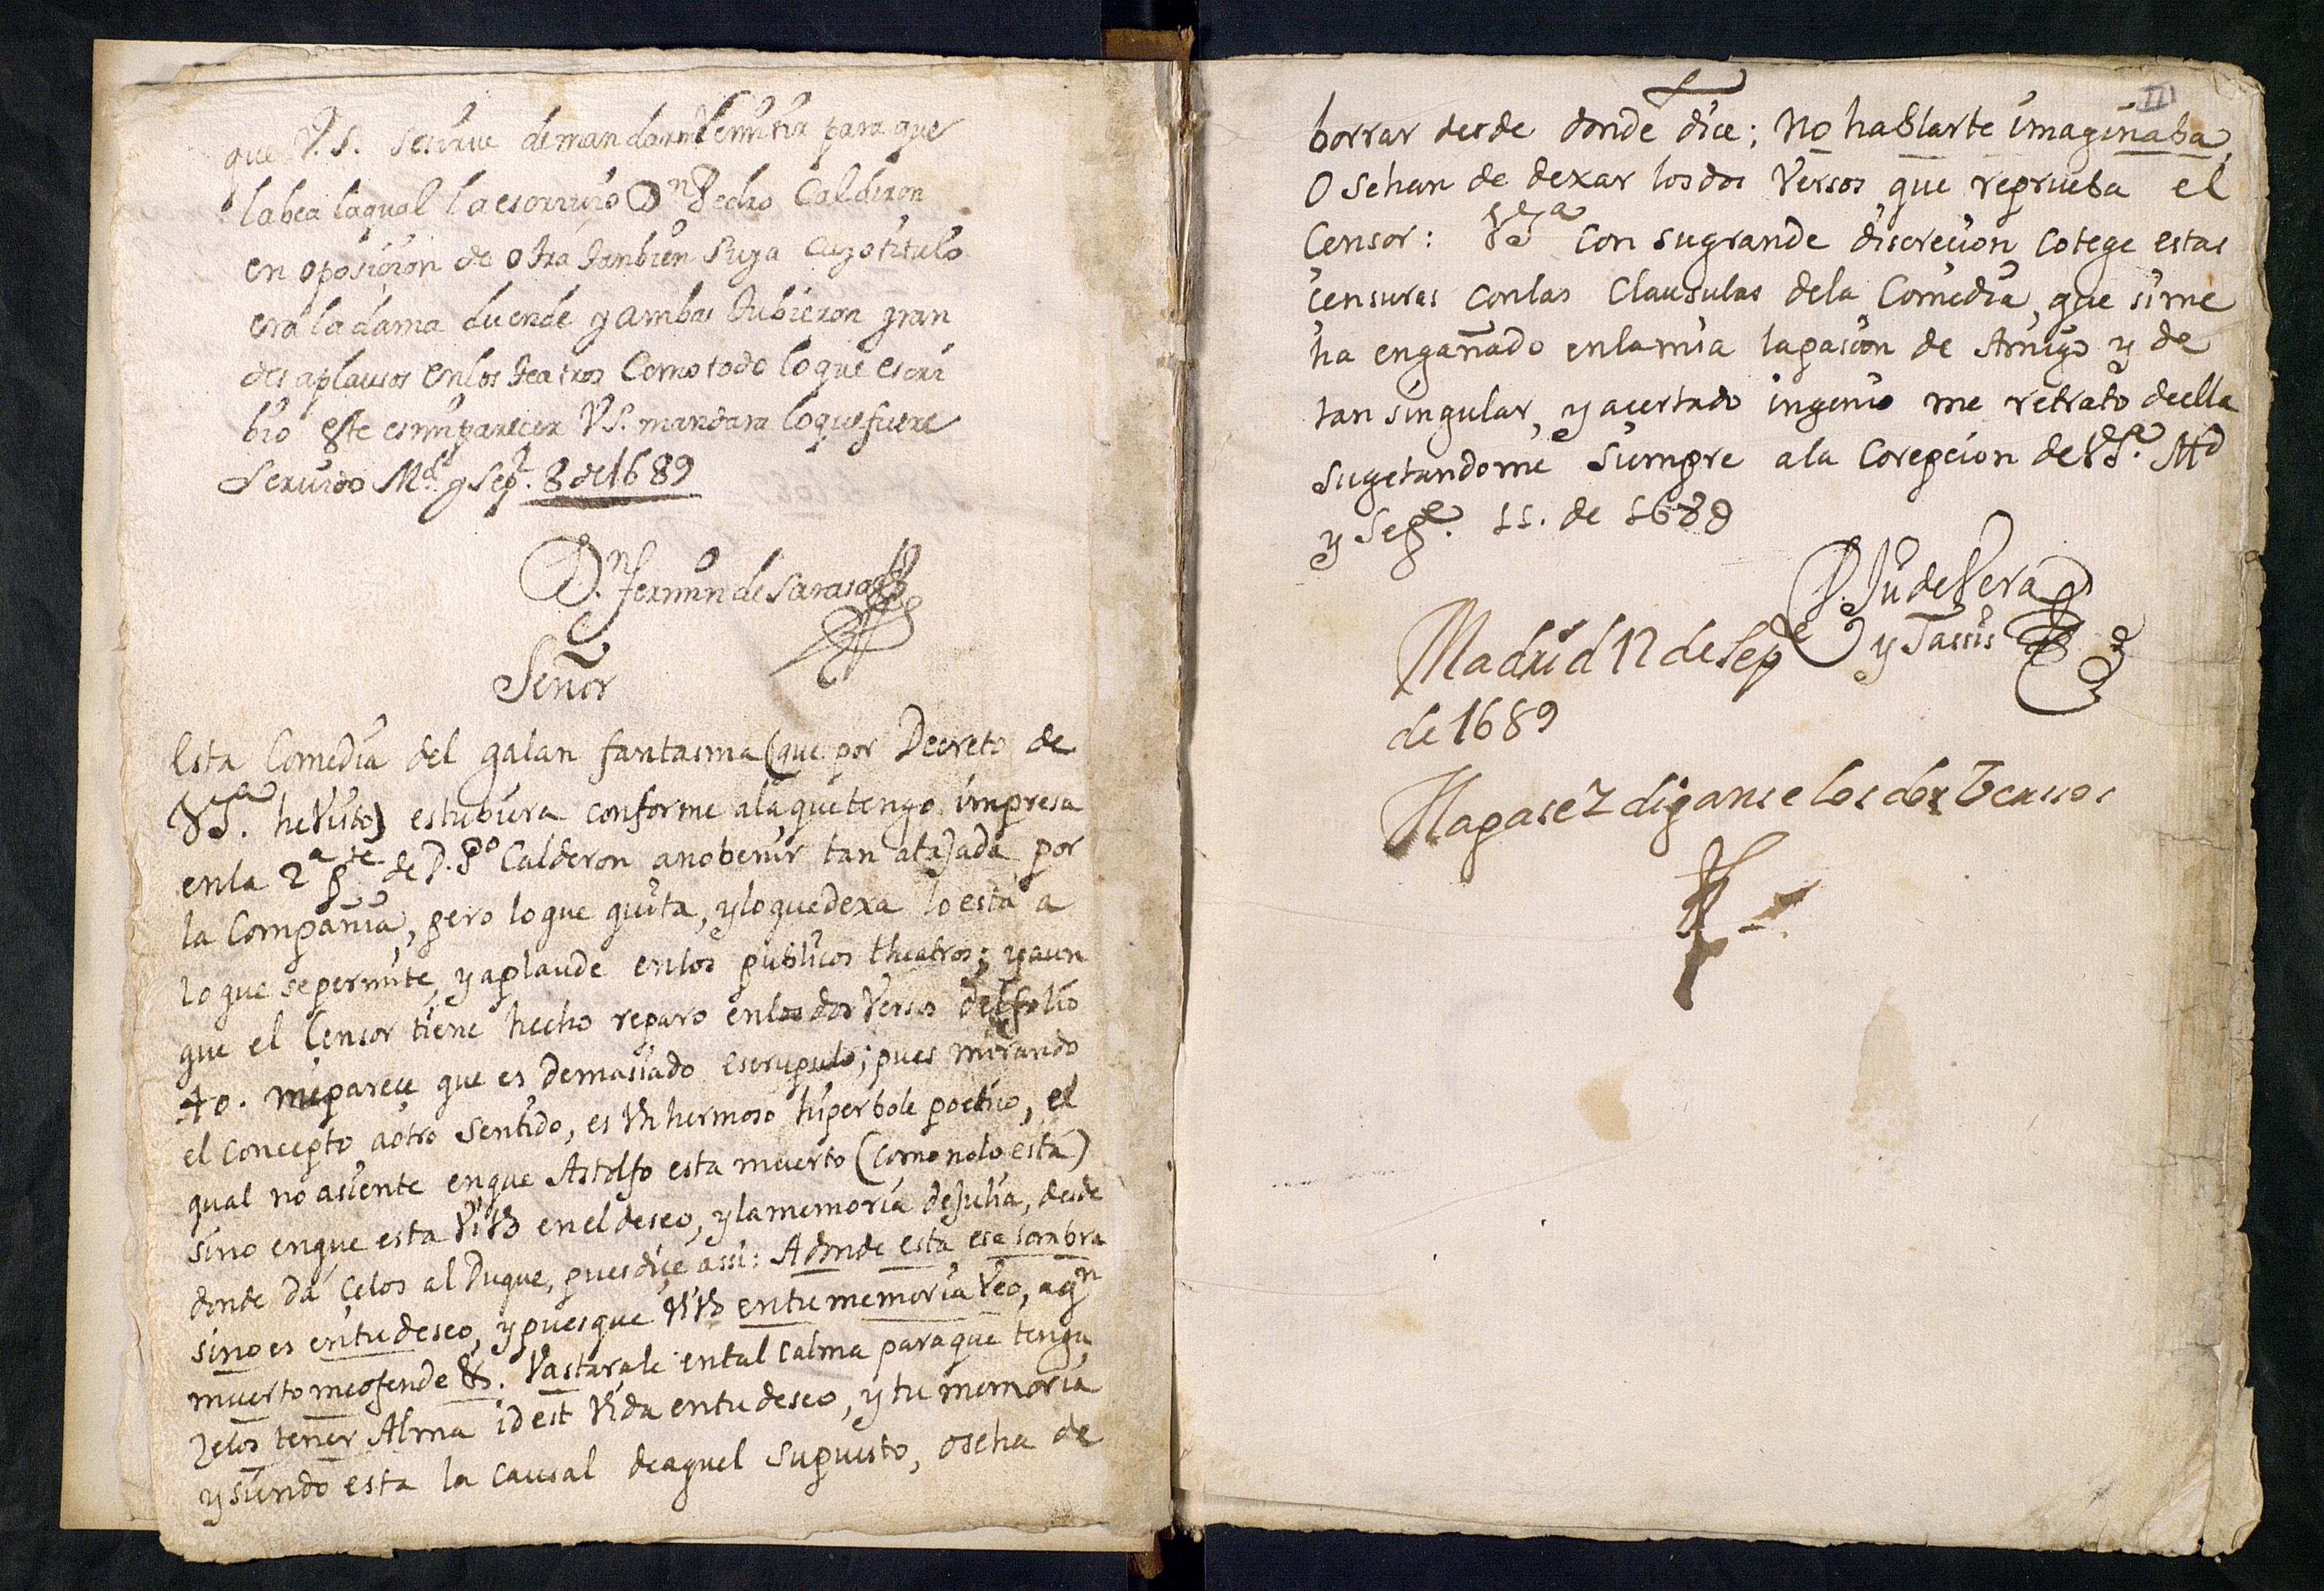 que V.S. se sirue de mandarme Remitir para que
la bea la qual la escriuio Dn Pedro Calderon
en oposicion de otra tanbien suya cuyo titulo
era la dama duende y ambas tubieron gran
des aplausos en los teatros como todo lo que escri
bio este es mi parecer VS. mandara lo que fuere
seruido Md y Sepe. 8 de 1689
Dn fermin de Sarasa
Señor
Esta Comedia del galan fantasma (que por Decreto de
VSa. he Visto) estubiera conforme a la que tengo impresa
en la 2a pte de D. Po Calderon a no benir tan atajada por
la Compañia, pero lo que quita, y lo que dexa lo està a
lo que se permite, y aplaude en los publicos theatros; y aun
que el Censor tiene hecho reparo en los dos Versos del folio
40. me parece que es demasiado escrupulo; pues mirando
el concepto a otro sentido, es Vn hermoso hiperbole poetico, el
qual no asiente en que Astolfo esta muerto (como no lo està)
sino en que esta ViVo en el deseo, y la memoria de Julia, desde
donde dà çelos al Duque, pues dice assi: Adonde esta esa sombra
sino es en tu deseo, y pues que ViVo en tu memoria Veo, a qn
muerto me ofende &. Vastarale en tal calma para que tenga
zelos tener Alma id est Vida en tu deseo, y tu memoria
y siendo esta la causal de aquel supuesto, o se ha de
II
borrar desde donde dice: No hablarte imaginaba,
O se han de dexar los dos Versos que reprueba el
Censor: VSa con su grande discrecion cotege estas
censuras con las Clausulas de la Comedia, que si me
ha engañado en la mia la pasion de Amigo y de
tan singular, y acertado ingenio me retrato de ella
sugetandome siempre a la Corepcion de VSa. Md
y Sepe. 11. de 1689
D. Ju de Vera
y Tassis
Madrid 12 de Sepe
de 1689
Hagase y diganse los dos Versos